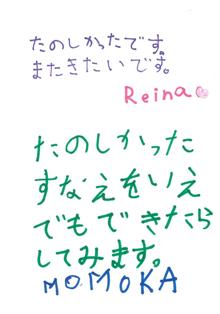 たのしかったです。
またきたいです。
Reina
たのしかった
すなえをいえ
でもできたら
してみます。
MOMOKA